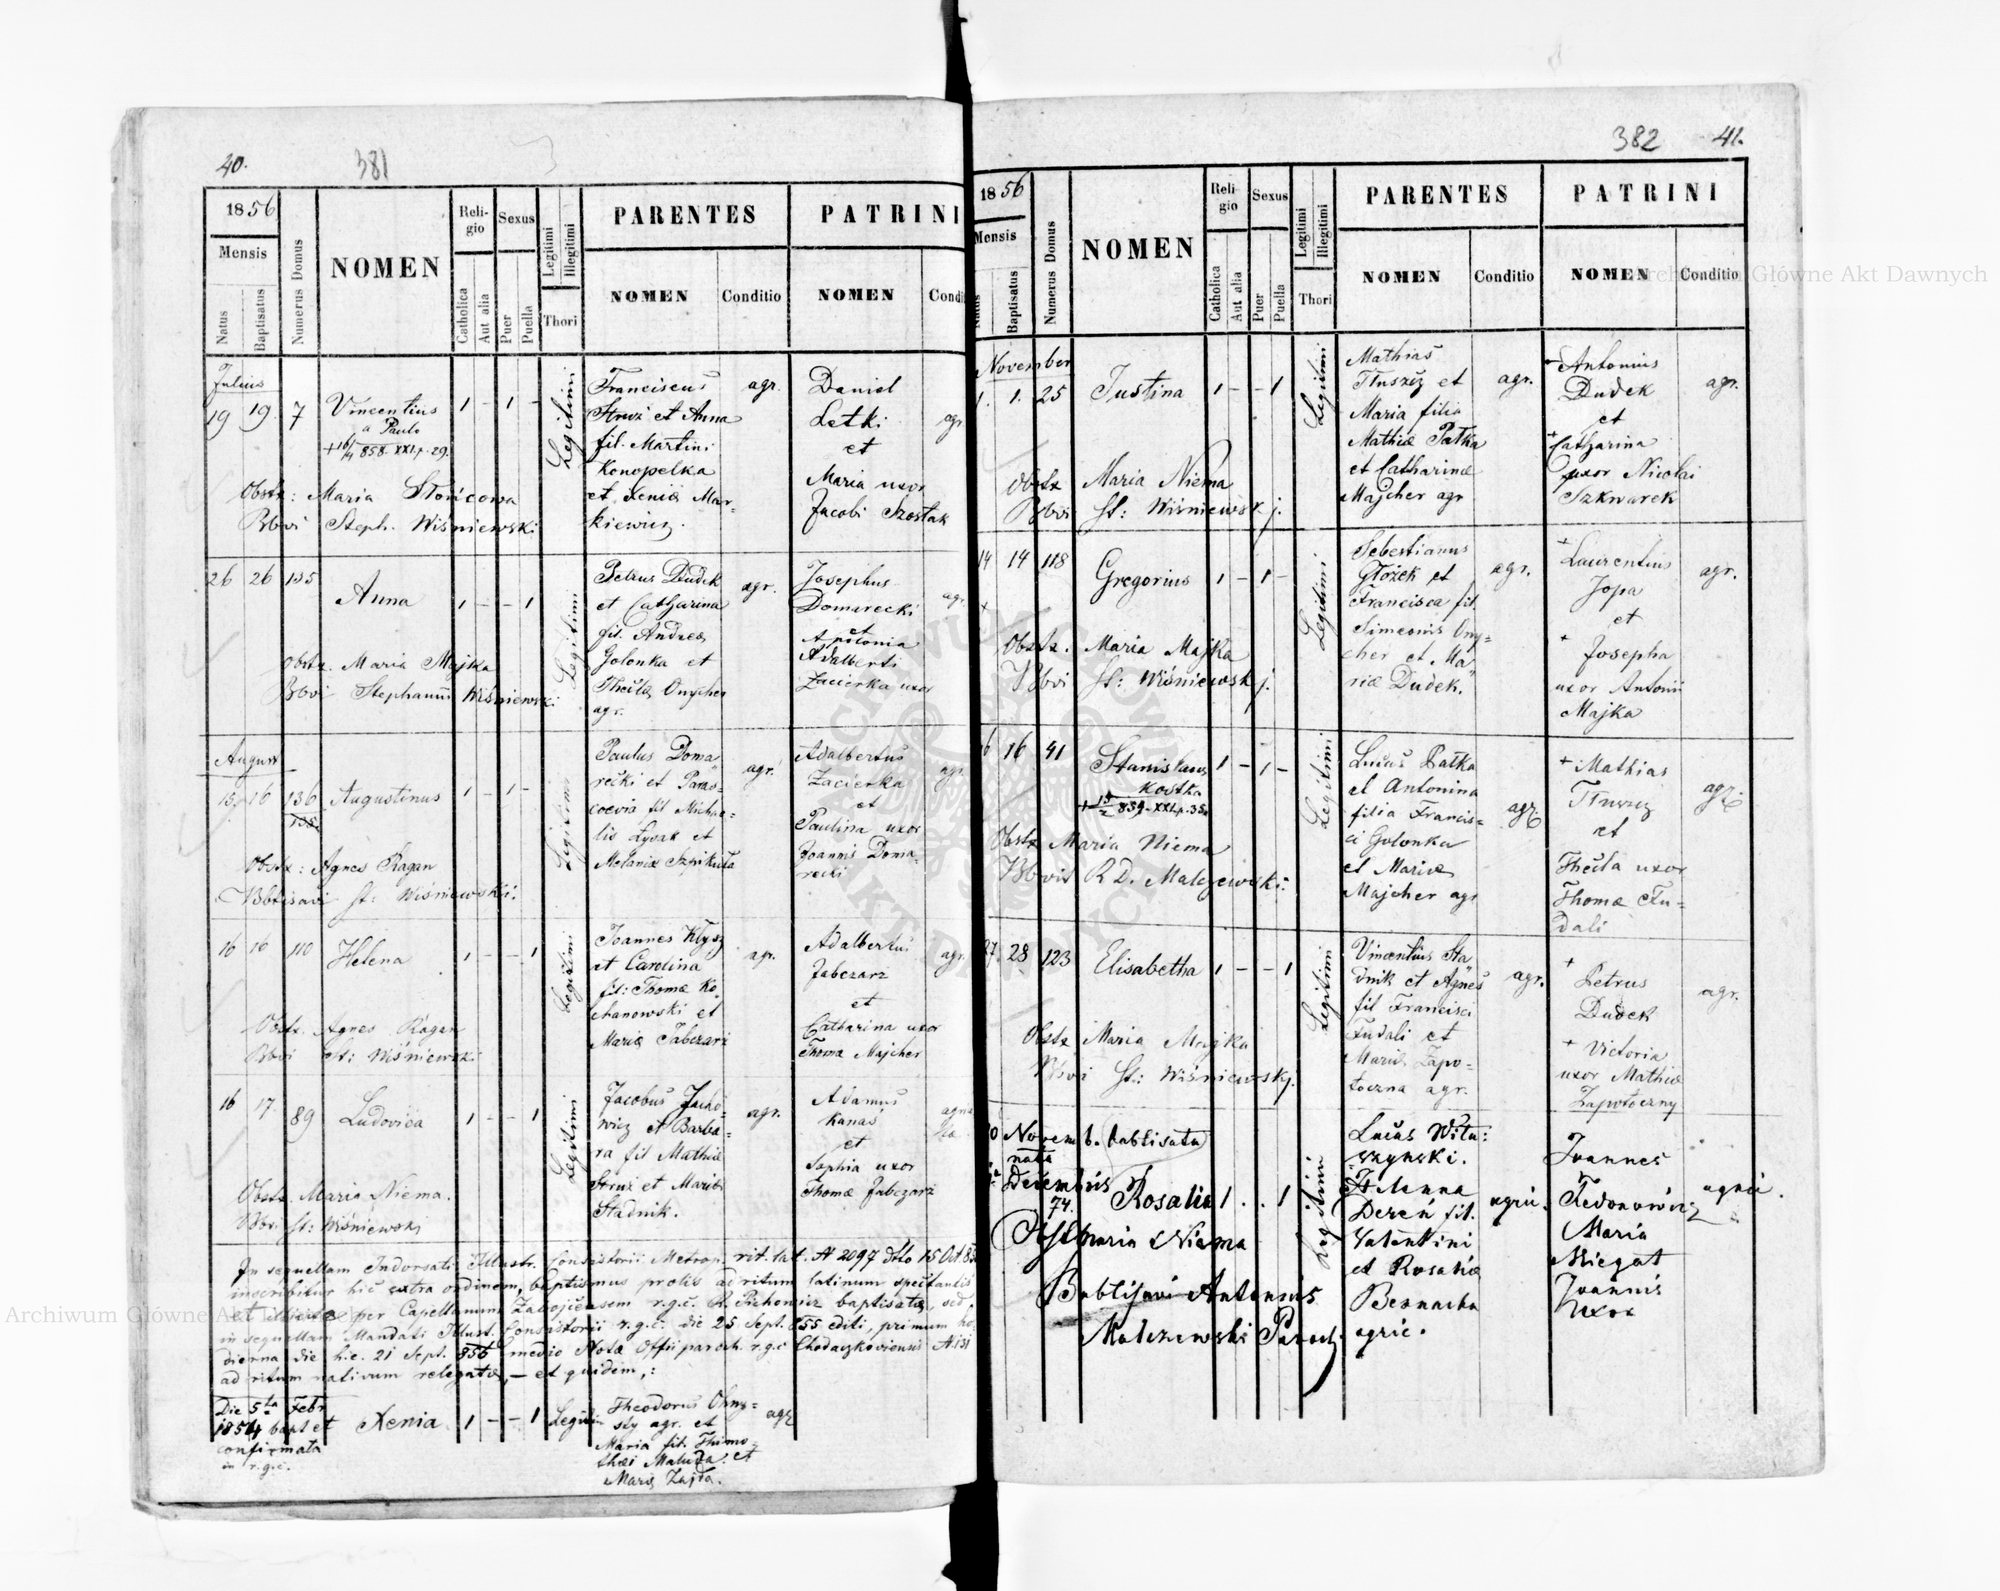 40.
381
1856
Mensis
Natus
Baptisatus
Numerus Domus
NOMEN
Religio
Catholica
Aut alia
Sexus
Puer
Puella
Legitimi
Illegitimi
Thori
PARENTES
NOMEN
Conditio
PATRINI
NOMEN
Condi
Julius
19 19. 7
Vincentius
a Paulo
858. XXI p. 29.
1 - 1 -
Legitimi
Franciscus
Struź et Anna
fil. Martini
Konopelka
et Xeniæ Mar-
kiewicz.
agr.
Daniel
Letki
et
Maria uxor
Jacobi Szostak
agr
Obstx: Maria Słońcowa
Bbvi Steph. Wiśniewski
26 26 135
Anna
1 - - 1
Legitimi
Petrus Dudek
et Catharina
fil. Andreæ
Golonka et
Theclæ Onycher
agr.
agr.
Josephus
Domarecki
et
Apolonia
Adalberti
Zacierka uxor
agr.
Obstx. Maria Majka
Bbvi Stephanus Wiśniewski
August
15. 16 136
138.
Augustinus
1 - 1 -
Legitimi
Paulus Doma
recki et Paras-
coevia fil Michae-
lis Lysak et
Melaniæ Szpikuła
agr.
Adalbertus
Zacierka
et
Paulina uxor
Joannis Doma-
recki
agr.
Obstx: Agnes Ragan
Bbtisavi St: Wiśniewski.
16 16 110
Helena
1 - - 1
Legitimi
Joannes Kłysz
et Carolina
fil: Thomæ Ko-
chanowski et
Mariæ Jabczarz
agr.
Adalbertus
Jabczarz
et
Catharina uxor
Thomæ Majcher
agr.
Obstx. Agnes Ragan
Bbvi St: Wiśniewski
16 17. 89
Ludovica
1 - - 1
Legitimi
Jacobus Jacho-
wicz et Barba-
ra fil Mathiæ
Struź et Mariæ
Stadnik.
agr.
Adamus
Kanas
et
Sophia uxor
Thomæ Jabczarz
Obstx. Maria Niema.
Bbv. St: Wiśniewski
In sequellam Indorsati Illustr. Consistorii Metrop. rit. lat. N 2097 ddto 15 Oct 85
inscribitur hic extra ordinem, baptismus prolis ad ritum latinum spectantis
et illicitæ per Capellanum Zabojcensem r.g.c. R. Pichowicz baptisatæ, sed
in sequellam Mandati Illust. Consistorii r.g.c. die 25 Sept. 855 editi, primum ho-
dierna die hic. 21 Sept. 856 medio Notæ Offi paroch. r.g.c. Chodaczkoviensis N 151
ad ritum nativum relegatæ, - et quidem,:
Die 5ta Febr
1854 bapt et
confirmata
in r.g.c.
Xenia.
1 - - 1
Legitim
Theodorus Ohny-
sty agr. et
Maria fil. Thimo-
thæi Maluza et
Mariæ Zajda.
agr
382
41.
1856
Mensis
Natus
Baptisatus
Numerus Domus
NOMEN
Religio
Catholica
Aut alia
Sexus
Puer
Puella
Legitimi
Illegitimi
Thori
PARENTES
NOMEN
Conditio
PATRINI
NOMEN
Conditio
November
1. 1. 25
Justina
1 - - 1
Legitimi
Mathias
Tłuszcz et
Maria filia
Mathiæ Pałka
et Catharinæ
Majcher agr
agr.
+ Antonius
Dudek
et
+ Catharina
uxor Nicolai
Szkwarek
agr.
Obstx Maria Niema
Bbvi St: Wiśniewskj.
14 14 118
Gregorius
1 - 1 -
Legitimi
Sebestianus
Głożek et
Francisca fil.
Simeonis Ony-
cher et Ma-
riæ Dudek.
agr.
+ Laurentius
Jopa
et
+ Josepha
uxor Antonii
Majka
agr.
Obstx. Maria Majka
Bbvi St: Wiśniewskj.
16 16 41
Stanislaus
Kostka
859. XXI. p. 35
1 - 1 -
Legitimi
Lucas Pałka
et Antonina
filia Francis-
ci Golonka
et Mariæ
Majcher agr
agr.
+ Mathias
Tłuszcz
et
Thecla uxor
Thomæ Fu-
dali
agr.
Obstx Maria Niema
Bbvit R D. Malczewski.
27. 28 123
Elisabetha
1 - - 1
Legitimi
Vincentius Sta-
dnik et Agnes
fil Francisci
Fudali et
Mariæ Zapo-
toczna agr.
agr.
+ Petrus
Dudek
+ Victoria
uxor Mathiæ
Zapotoczny
agr.
Obstx Maria Majka
Bbvi St: Wiśniewskj.
Novemb. babtisata
nata
Decembris
74.
Rosalia
1 . . 1
Legitimi
Lucas Witu:
szynski.
Helenna
Dereń fil.
Valentini
et Rosaliæ
Bernacka
agric.
agric.
Joannes
Fedonowicz
Maria
Niegat
Joannis
Uxor
agric.
Obst maria Niema
Babtisavi Antonius
Malczewski Paroch.
Archiwum Główne Akt Dawnych
Archiwum Główne Akt Dawnych
ARCHIWUM GŁÓWNE AKT DAWNYCH